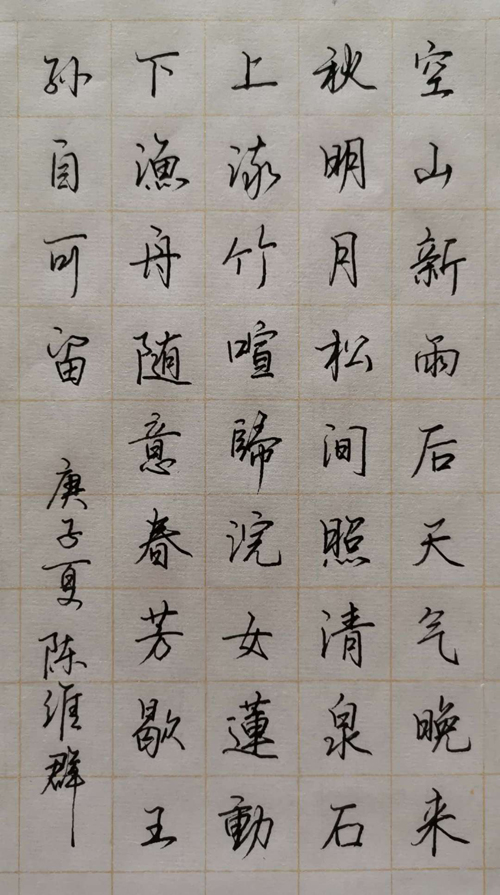 空山新雨后天气晚来
秋明月松间照清泉石
上流竹喧歸浣女蓮動
下渔舟随意春芳歇王
孙自可留
庚子夏陈维群